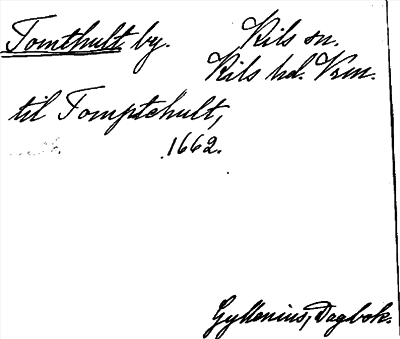 Tomthult by. Kils sn.
Kils hd. Vrm.
til Tomptehult,
1662.
Gyllenius, Dagbok.